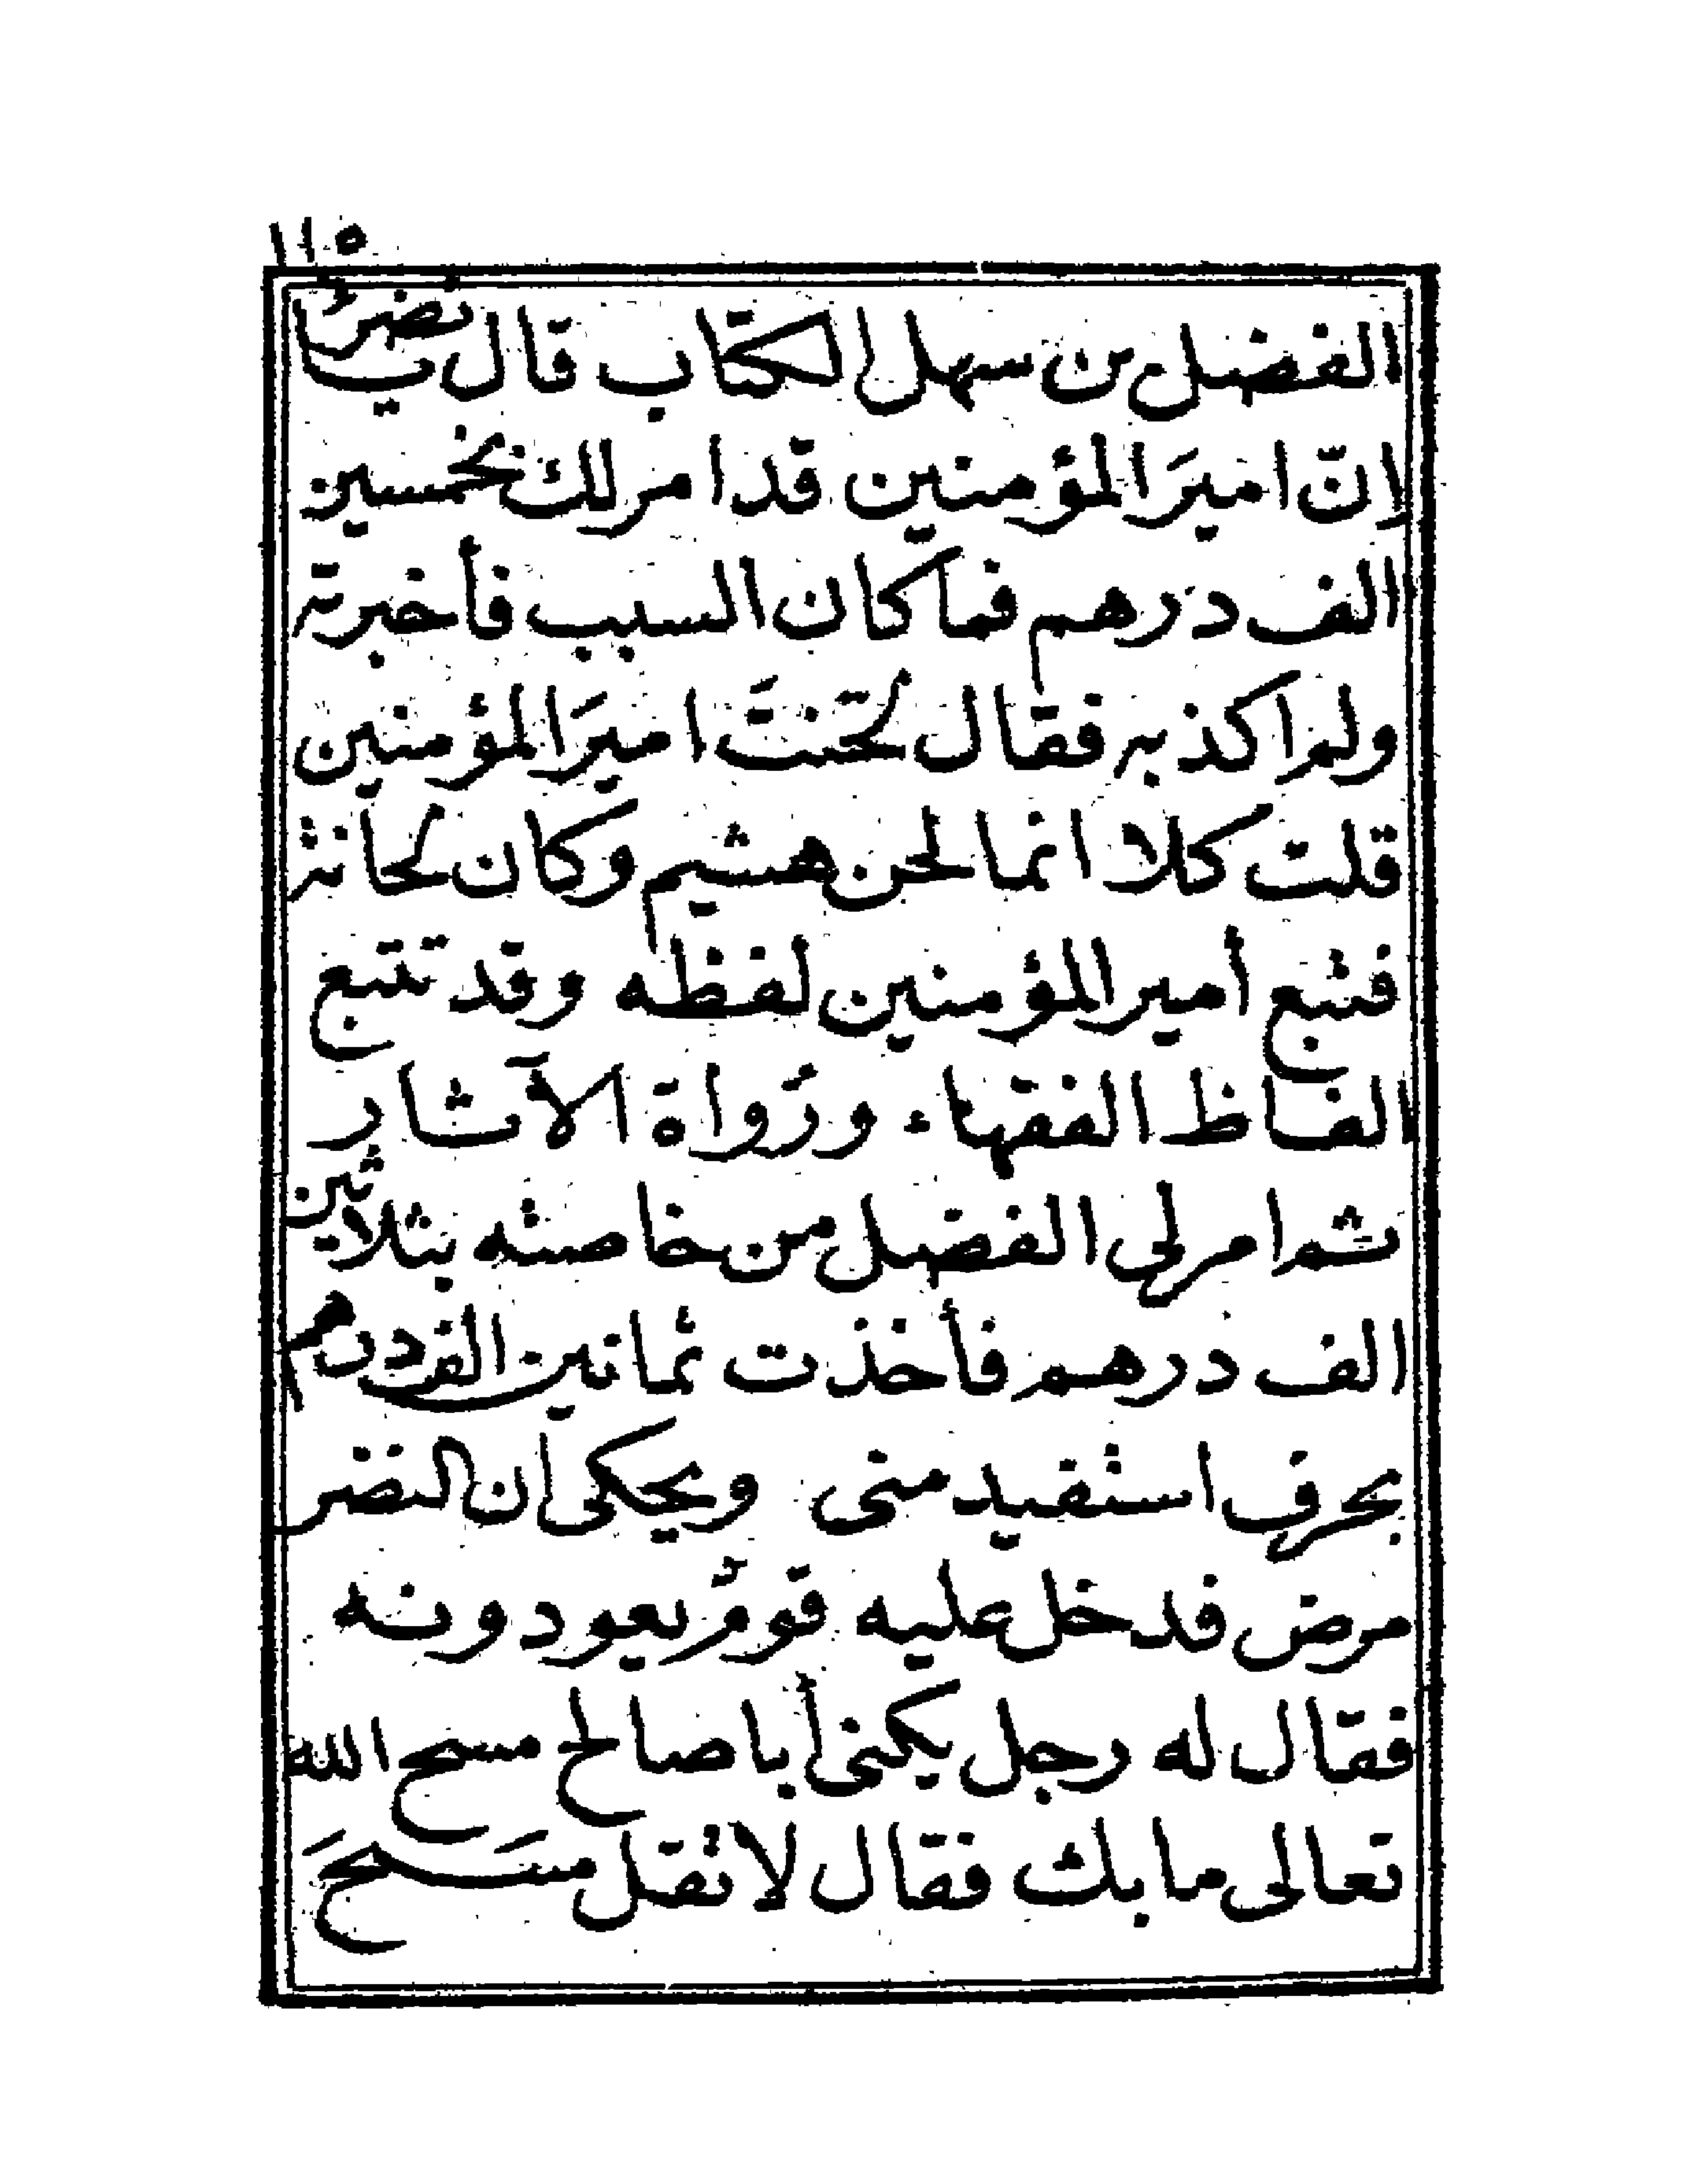 ١١٥
الفضل بن سهل الكتاب قال يا نضرُ
إنّ اميرَ المؤمنين قد امر لك بخمسين
الف درهم فما كان السبب فأخبرته
ولم اكذبه فقال لحّنتَ اميرَ المؤمنين
قلت كلا انما لحن هشيم وكان لحانة
فتبع أمير المؤمنين لفظه وقد تتبع
الفاظ الفقهاء ورُواة الآثار
ثم امر لى الفضل من خاصته بثلاثين
الف درهم فأخذت ثمانين الف درهم
بحرف استفيد منى ويحكى أن النضر
مرض فدخل عليه قومٌ يعودونه
فقال له رجل يكنى أبا صالح مسح الله
تعالى ما بك فقال لا تقل مسَحَ